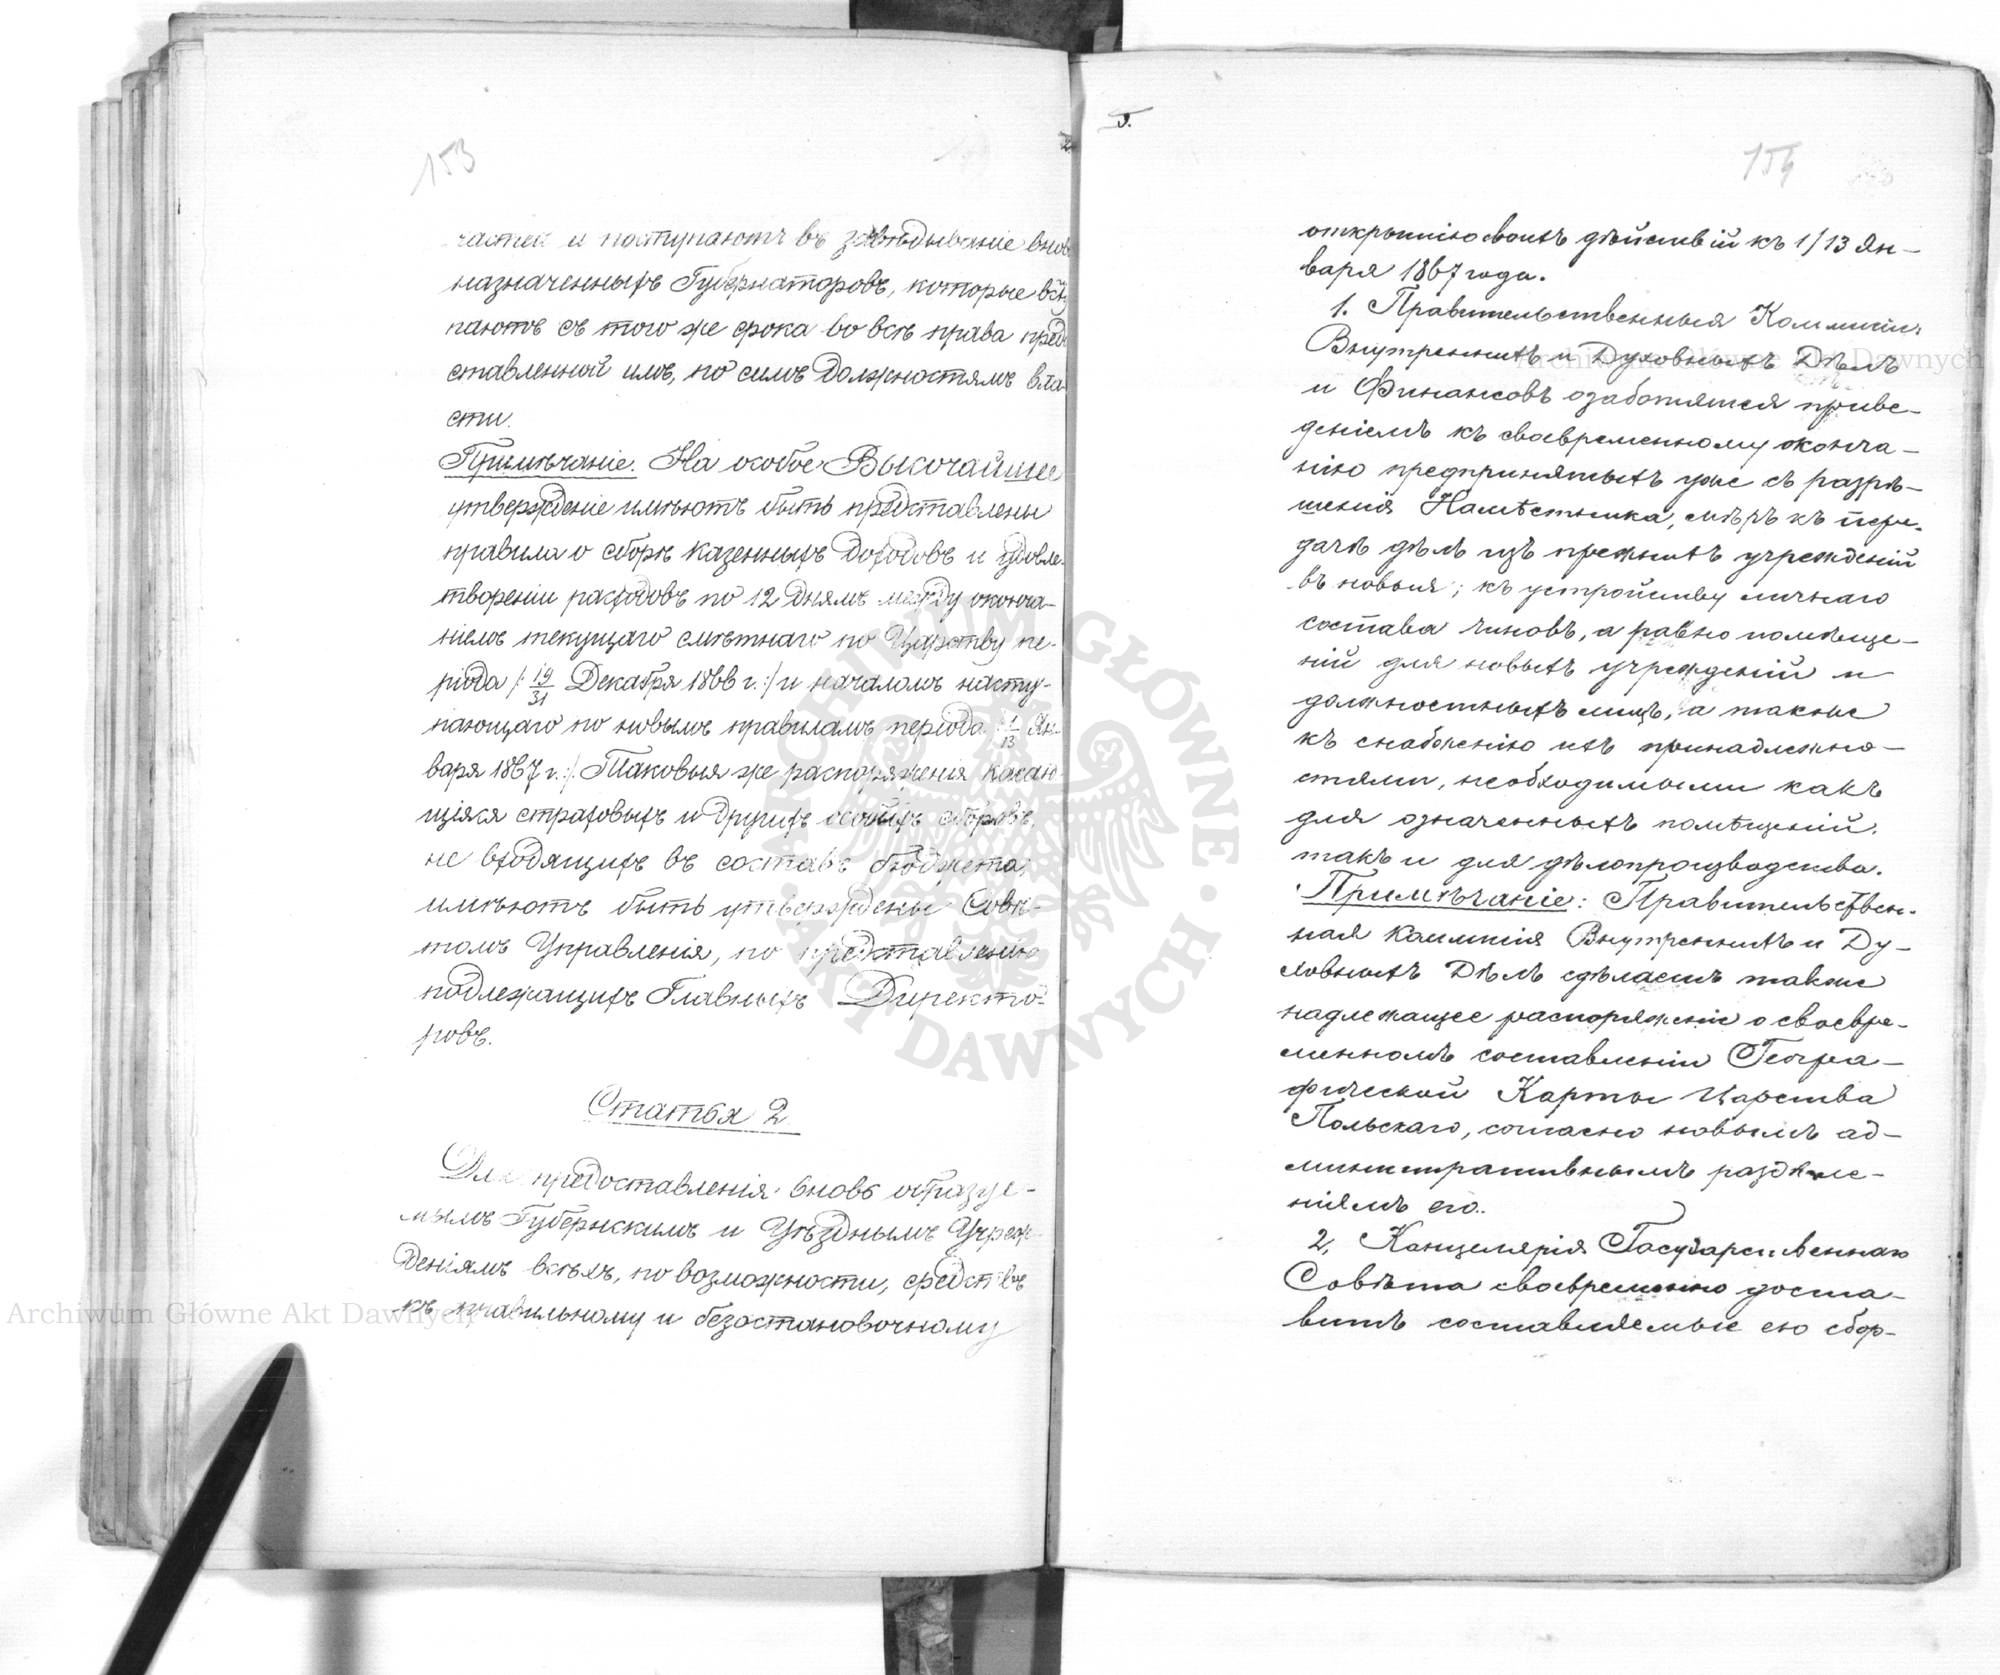 153
частей и поступаютъ въ завѣдываніе внов
назначенныхъ Губернаторовъ, которые всту
паютъ съ того же срока во всѣ права пред
ставленной имъ, по симъ должностямъ вла
сти.
Примѣчаніе. На особое Высочайшее
утвержденіе имѣютъ быть представлены
правила о сборѣ казенныхъ доходовъ и удовле-
твореніи расходовъ по 12 днямъ между оконча-
ніемъ текущаго смѣтнаго по Царству пе-
ріода /: 19/31 Декабря 1866 г. :/ и началомъ насту-
пающаго по новымъ правиламъ періода /: 1/13 Ян-
варя 1867 г. :/. Таковыя же распоряженія касаю-
щіяся страховыхъ и другихъ особыхъ сборовъ,
не входящихъ въ составъ бюджета,
имѣютъ быть утверждены Совѣ-
томъ Управленія, по представленію
подлежащихъ Главныхъ Директо-
ровъ.
Статья 2
Для предоставленія вновь образуе-
мымъ Губернскимъ и Уѣзднымъ Учреж-
деніямъ всѣхъ, по возможности, средствъ
къ правильному и безостановочному
154
открытію своихъ дѣйствій къ 1/13 Ян-
варя 1867 года.
1. Правительственныя Коммисіи
Внутреннихъ и Духовныхъ Дѣлъ
и Финансовъ озаботятся приве-
деніемъ къ своевременному оконча-
нію предпринятыхъ уже съ разрѣ-
шенія Намѣстника, мѣръ къ пере-
дачѣ дѣлъ изъ прежнихъ учрежденій
въ новыя; къ устройству личнаго
состава чиновъ, а равно помѣще-
ній для новыхъ учрежденій и
должностныхъ лицъ, а также
къ снабженію ихъ принадлежно-
стями, необходимыми какъ
для означенныхъ помѣщеній,
такъ и для дѣлопроизводства.
Примѣчаніе: Правительствен-
ная Коммисія Внутреннихъ и Ду-
ховныхъ Дѣлъ сдѣлаетъ также
надлежащее распоряженіе о своевре-
менномъ составленіи Геогра-
фической Карты Царства
Польскаго, согласно новымъ ад-
министративнымъ раздѣле-
ніямъ его.
2. Канцелярія Государственнаго
Совѣта своевременно доста-
витъ составляемые ею сбор-
Archiwum Główne Akt Dawnych
Archiwum Główne Akt Dawnych
ARCHIWUM GŁÓWNE · AKT DAWNYCH ·